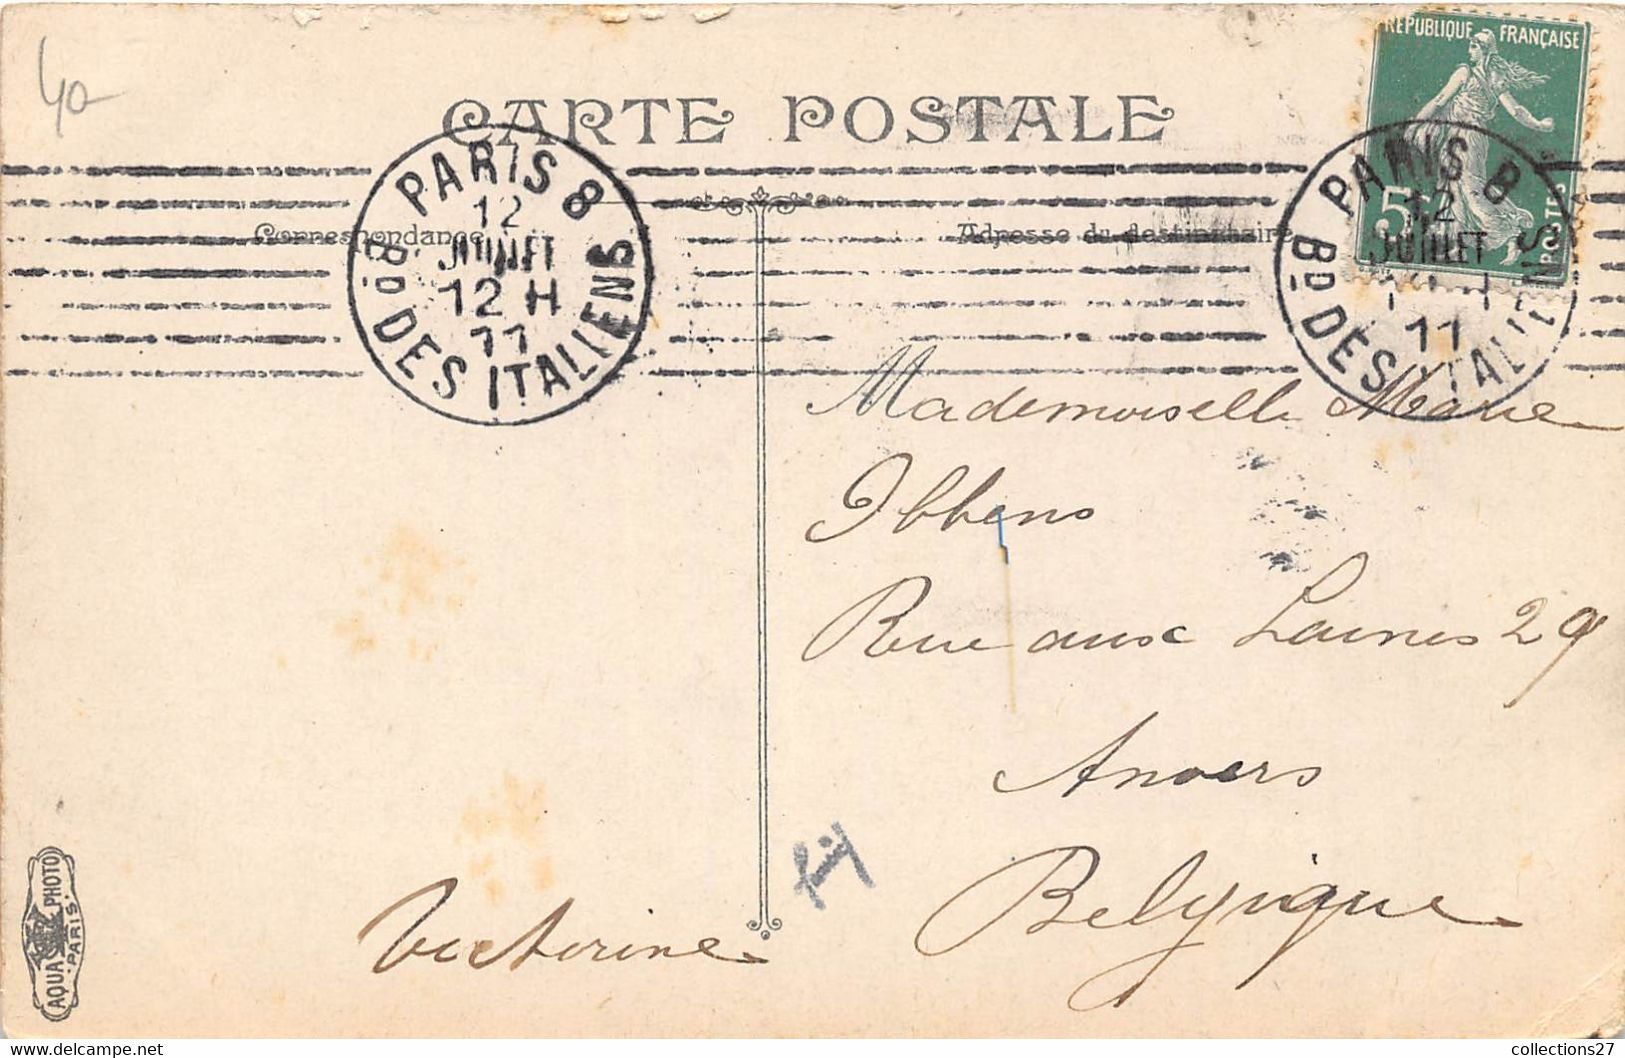 40-
CARTE POSTALE
RÉPUBLIQUE FRANÇAISE
5c
POSTES
PARIS 8
12
JUILLET
12 H
11
Bd DES ITALIENS
PARIS 8
12
JUILLET
11
Bd DES ITALIENS
Correspondance
Adresse du destinataire
Mademoiselle Marie
Ibbens
Rue aux Laines 29
Anvers
Belgique
Victorine
AQUA PHOTO
PARIS
collections27